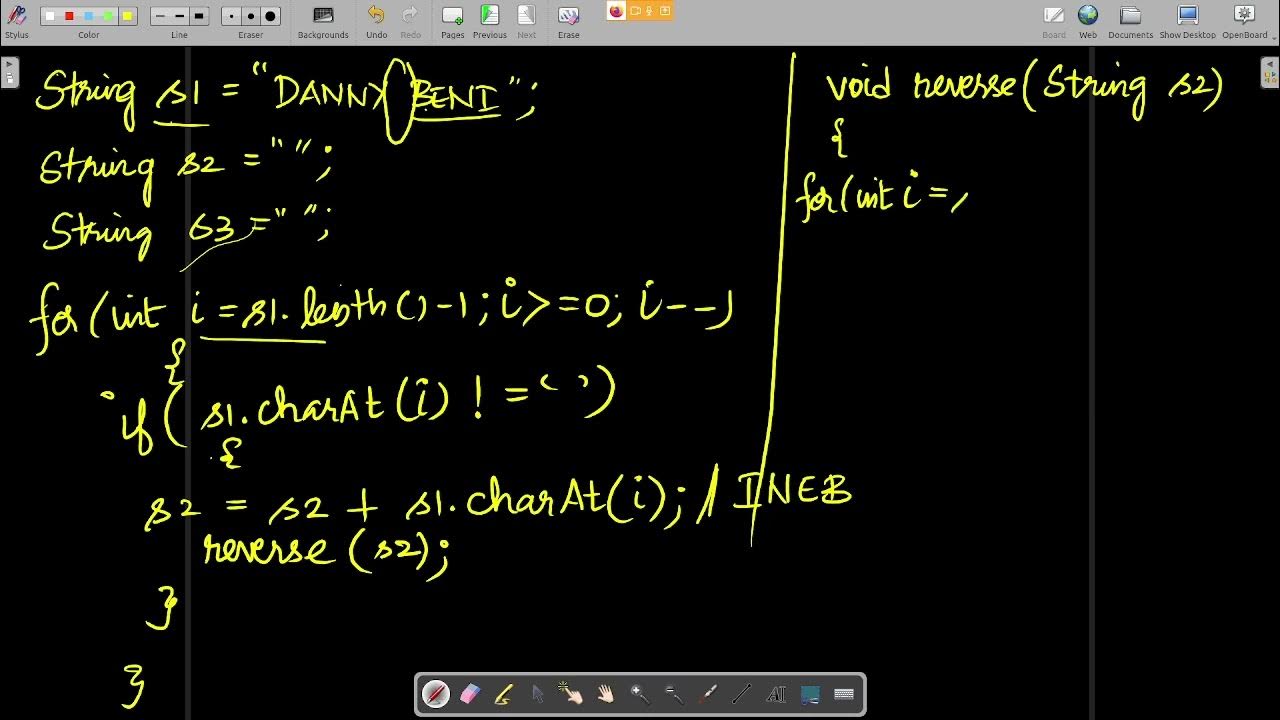 Stylus Color Line Eraser Backgrounds Undo Redo Pages Previous Next Erase Board Web Documents Show Desktop OpenBoard
String s1 = "DANNY BENI";
String s2 = "";
String s3 = "";
for(int i = s1.length()-1; i>=0; i--)
{
if( s1.charAt(i) != ' ')
{
s2 = s2 + s1.charAt(i); // INEB
reverse(s2);
}
}
void reverse(String s2)
{
for(int i=
AI